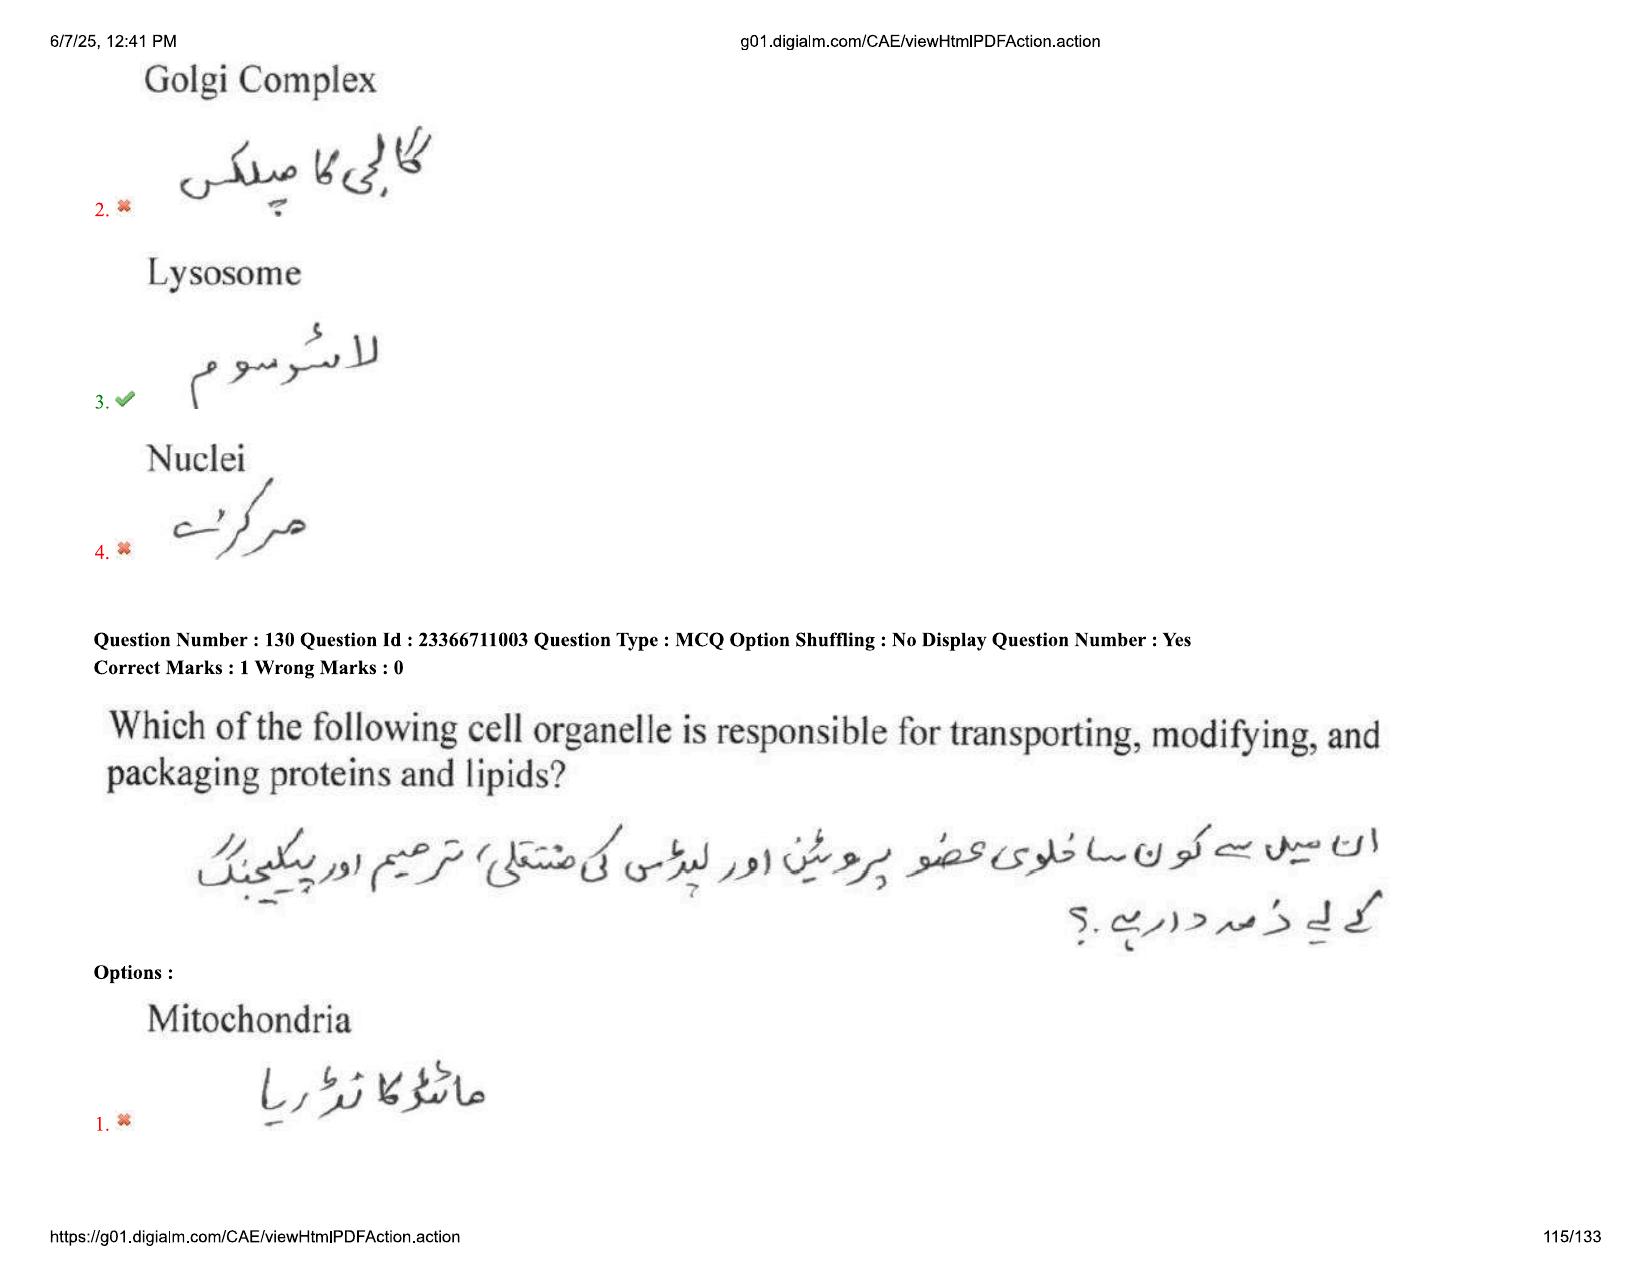 6/7/25, 12:41 PM
g01.digialm.com/CAE/viewHtmlPDFAction.action
Golgi Complex
گالجی کا مپلکس
2.
Lysosome
لائسوسوم
3.
Nuclei
مرکزے
4.
Question Number : 130 Question Id : 23366711003 Question Type : MCQ Option Shuffling : No Display Question Number : Yes
Correct Marks : 1 Wrong Marks : 0
Which of the following cell organelle is responsible for transporting, modifying, and
packaging proteins and lipids?
ان میں سے کون سا خلوی عضو پروٹین اور لپڈس کی منتقلی، ترمیم اور پیکیجنگ
کے لیے ذمہ دار ہے ؟
Options :
Mitochondria
مائٹوکانڈریا
1.
https://g01.digialm.com/CAE/viewHtmlPDFAction.action
115/133